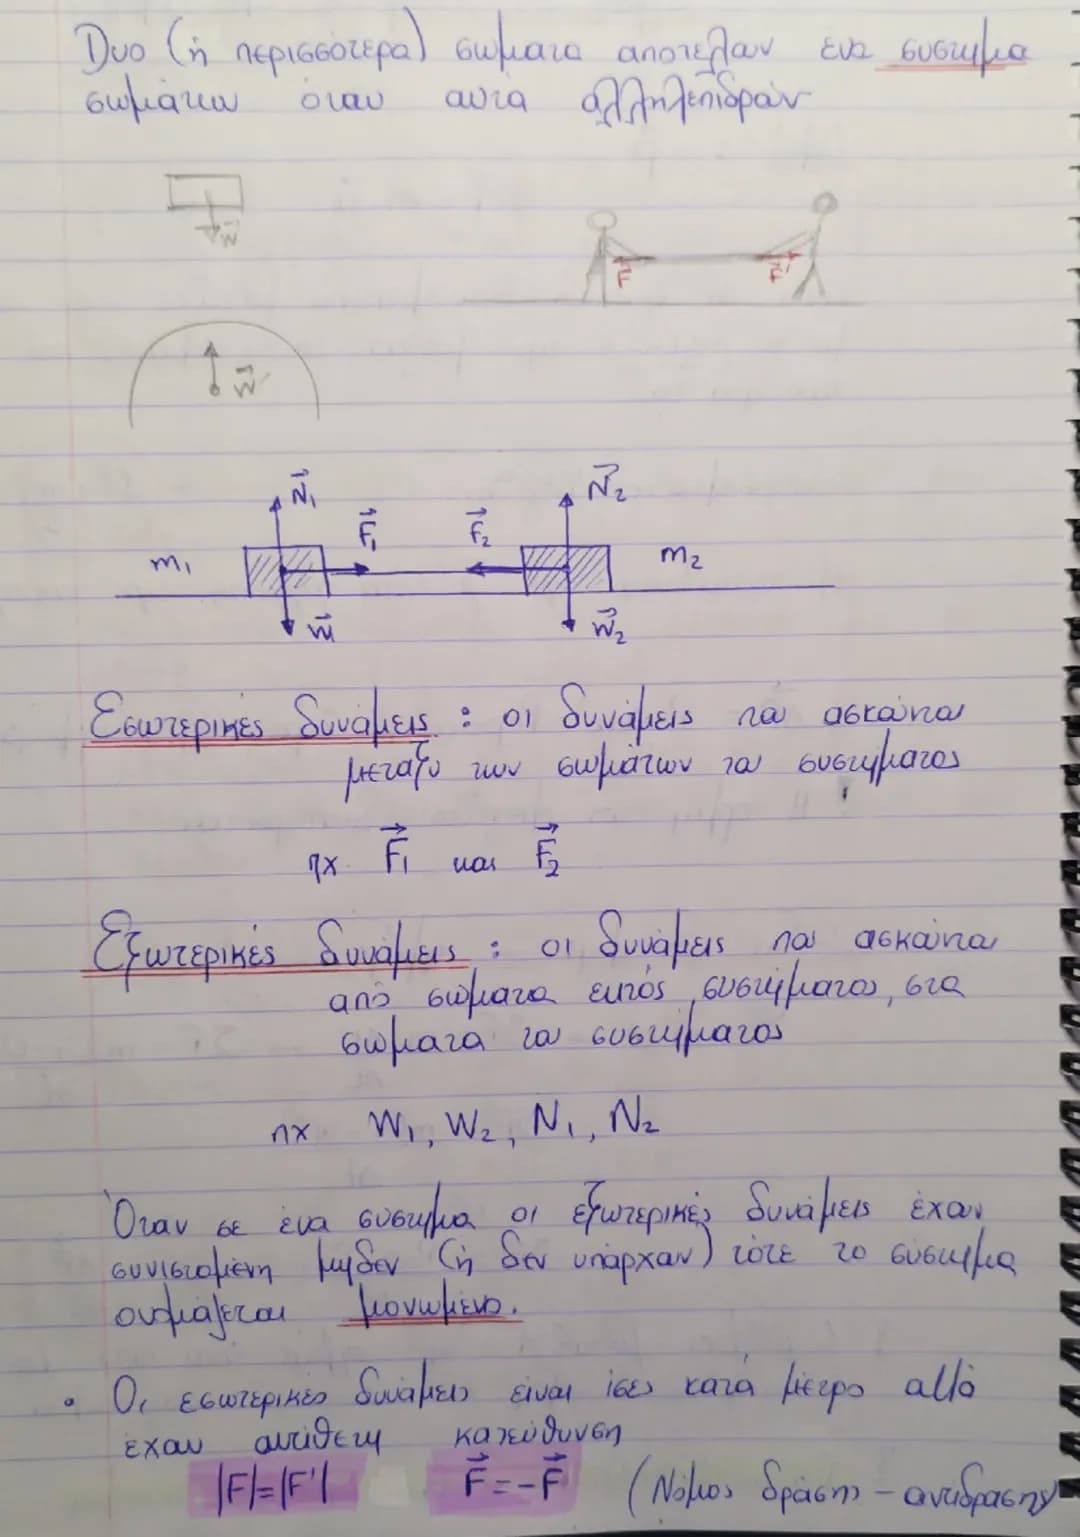 Δυο (ή περισσότερα) σώματα αποτελούν ένα σύστημα
σωμάτων όταν αυτά αλληλεπιδρούν
w⃗
F⃗ F⃗'
w⃗
N⃗₁ N⃗₂
F⃗₁ F⃗₂
m₁ m₂
w⃗₁ w⃗₂
Εσωτερικές δυνάμεις : οι δυνάμεις που ασκούνται
μεταξύ των σωμάτων του συστήματος
πχ F⃗₁ και F⃗₂
Εξωτερικές δυνάμεις : οι δυνάμεις που ασκούνται
από σώματα εκτός συστήματος, στα
σώματα του συστήματος
πχ W₁, W₂, N₁, N₂
Όταν σε ένα σύστημα οι εξωτερικές δυνάμεις έχουν
συνισταμένη μηδέν (ή δεν υπάρχουν) τότε το σύστημα
ονομάζεται μονωμένο.
• Οι εσωτερικές δυνάμεις είναι ίσες κατά μέτρο αλλά
έχουν αντίθετη κατεύθυνση
|F|=|F'| F⃗=-F⃗ (Νόμος δράσης - αντίδρασης